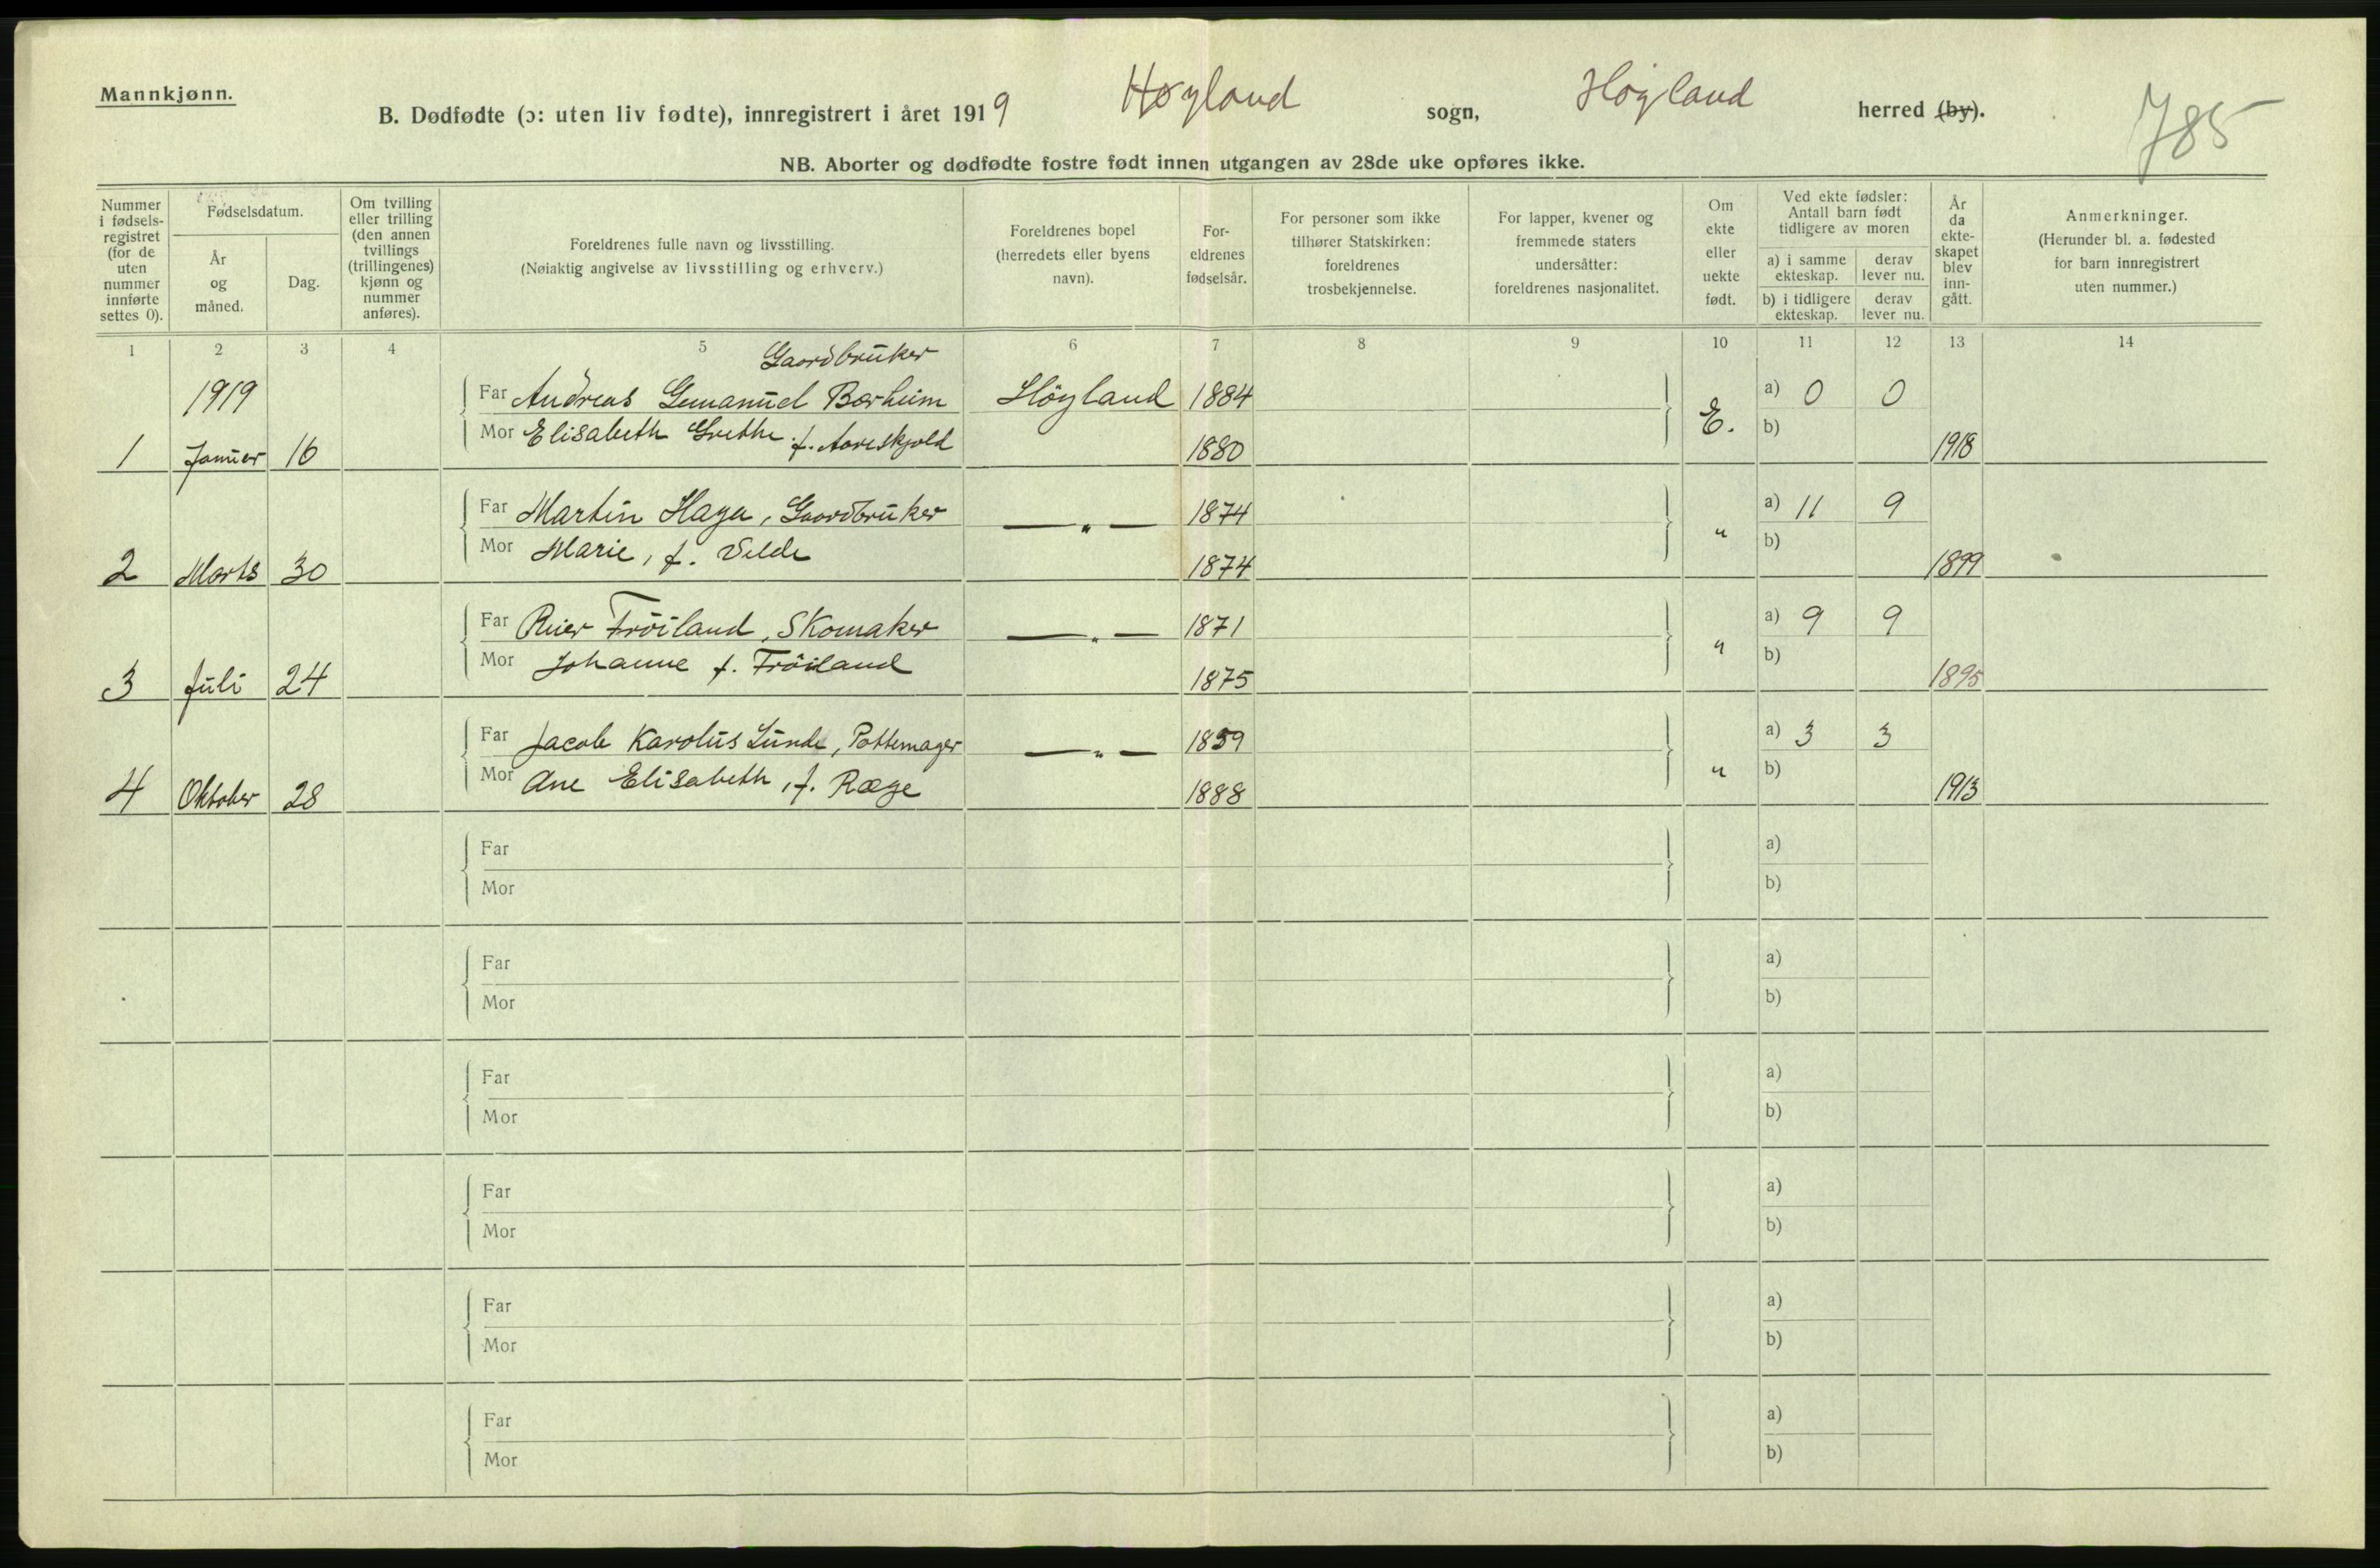 Mannkjønn.
B. Dødfødte (ɔ: uten liv fødte), innregistrert i året 1919 Høyland sogn, Höyland herred (by).
785
NB. Aborter og dødfødte fostre født innen utgangen av 28de uke opføres ikke.
Nummer i fødsels-registret (for de uten nummer innførte settes 0).
Fødselsdatum.
År og måned.
Dag.
Om tvilling eller trilling (den annen tvillings (trillingenes) kjønn og nummer anføres).
Foreldrenes fulle navn og livsstilling.
(Nøiaktig angivelse av livsstilling og erhverv.)
Foreldrenes bopel (herredets eller byens navn).
For-eldrenes fødselsår.
For personer som ikke tilhører Statskirken: foreldrenes trosbekjennelse.
For lapper, kvener og fremmede staters undersåtter: foreldrenes nasjonalitet.
Om ekte eller uekte født.
Ved ekte fødsler: Antall barn født tidligere av moren
a) i samme ekteskap.
derav lever nu.
b) i tidligere ekteskap.
derav lever nu.
År da ekte-skapet blev inn-gått.
Anmerkninger.
(Herunder bl. a. fødested for barn innregistrert uten nummer.)
1 2 3 4 5 6 7 8 9 10 11 12 13 14
Gaardbruker
1919 Far Andreas Emanuel Borheim Höyland 1884 E. a) 0 0
1 Januar 16 Mor Elisabeth Grethe f. 1880 b) 1918
Far Martin Haga, Gaardbruker — „ — 1874 „ a) 11 9
2 Marts 30 Mor Marie, f. Velde 1874 b) 1899
Far Reier Fröiland, Skomaker — „ — 1871 „ a) 9 9
3 Juli 24 Mor Johanne f. Fröiland 1875 b) 1895
Far Jacob Karolus Lunde, Pottemager — „ — 1859 „ a) 3 3
4 Oktober 28 Mor Ane Elisabeth, f. Ræge 1888 b) 1913
Far a)
Mor b)
Far a)
Mor b)
Far a)
Mor b)
Far a)
Mor b)
Far a)
Mor b)
Far a)
Mor b)